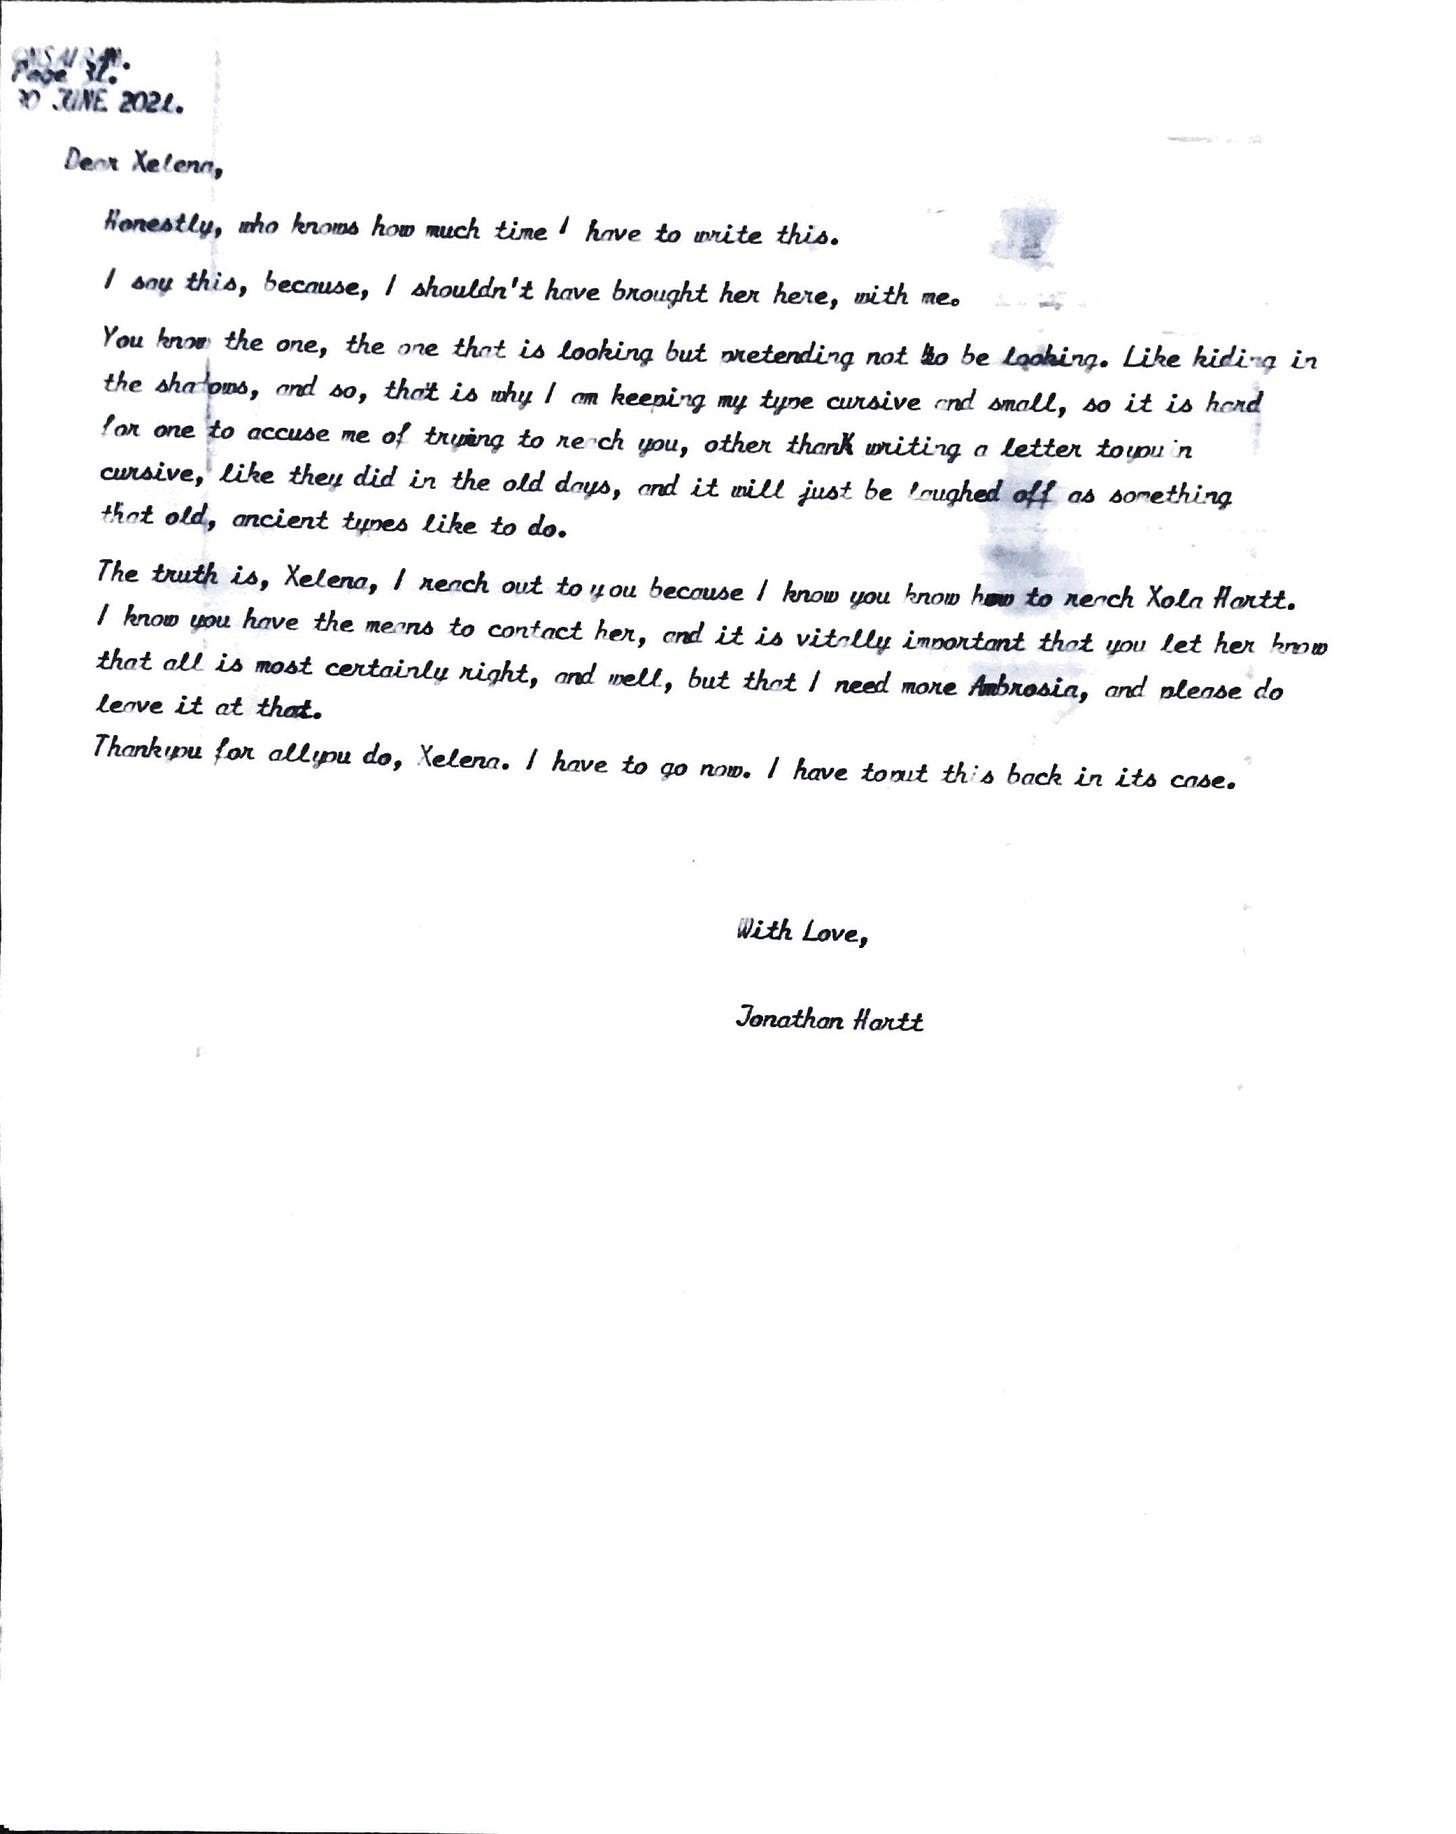 Page 31.
30 JUNE 2021.
Dear Xelena,
Honestly, who knows how much time I have to write this.
I say this, because, I shouldn't have brought her here, with me.
You know the one, the one that is looking but pretending not to be looking. Like hiding in
the shadows, and so, that is why I am keeping my type cursive and small, so it is hard
for one to accuse me of trying to reach you, other thank writing a letter toyou in
cursive, like they did in the old days, and it will just be laughed off as something
that old, ancient types like to do.
The truth is, Xelena, I reach out to you because I know you know how to reach Xola Hartt.
I know you have the means to contact her, and it is vitally important that you let her know
that all is most certainly right, and well, but that I need more Ambrosia, and please do
leave it at that.
Thankyou for allyou do, Xelena. I have to go now. I have toput this back in its case.
With Love,
Jonathan Hartt